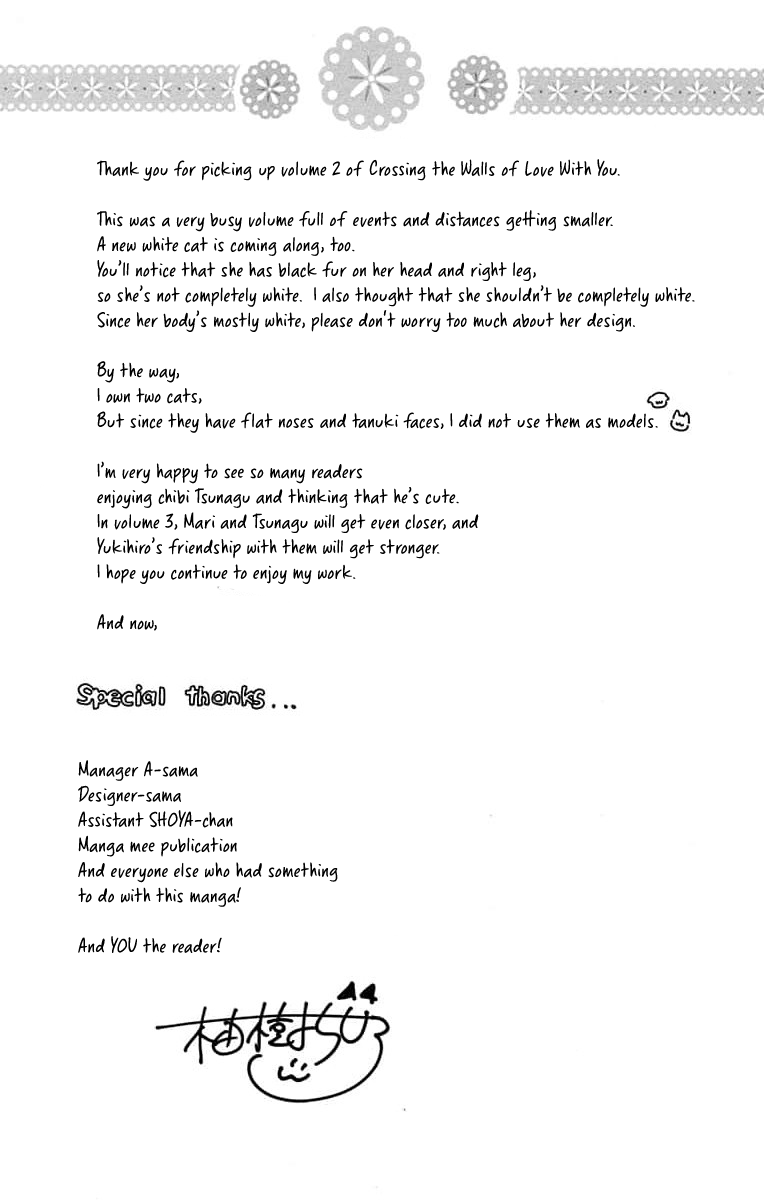 Thank you for picking up volume 2 of Crossing the Walls of Love With You.
This was a very busy volume full of events and distances getting smaller.
A new white cat is coming along, too.
You'll notice that she has black fur on her head and right leg,
so she's not completely white. I also thought that she shouldn't be completely white.
Since her body's mostly white, please don't worry too much about her design.
By the way,
I own two cats,
But since they have flat noses and tanuki faces, I did not use them as models.
I'm very happy to see so many readers
enjoying chibi Tsunagu and thinking that he's cute.
In volume 3, Mari and Tsunagu will get even closer, and
Yukihiro's friendship with them will get stronger.
I hope you continue to enjoy my work.
And now,
Special thanks...
Manager A-sama
Designer-sama
Assistant SHOYA-chan
Manga mee publication
And everyone else who had something
to do with this manga!
And YOU the reader!